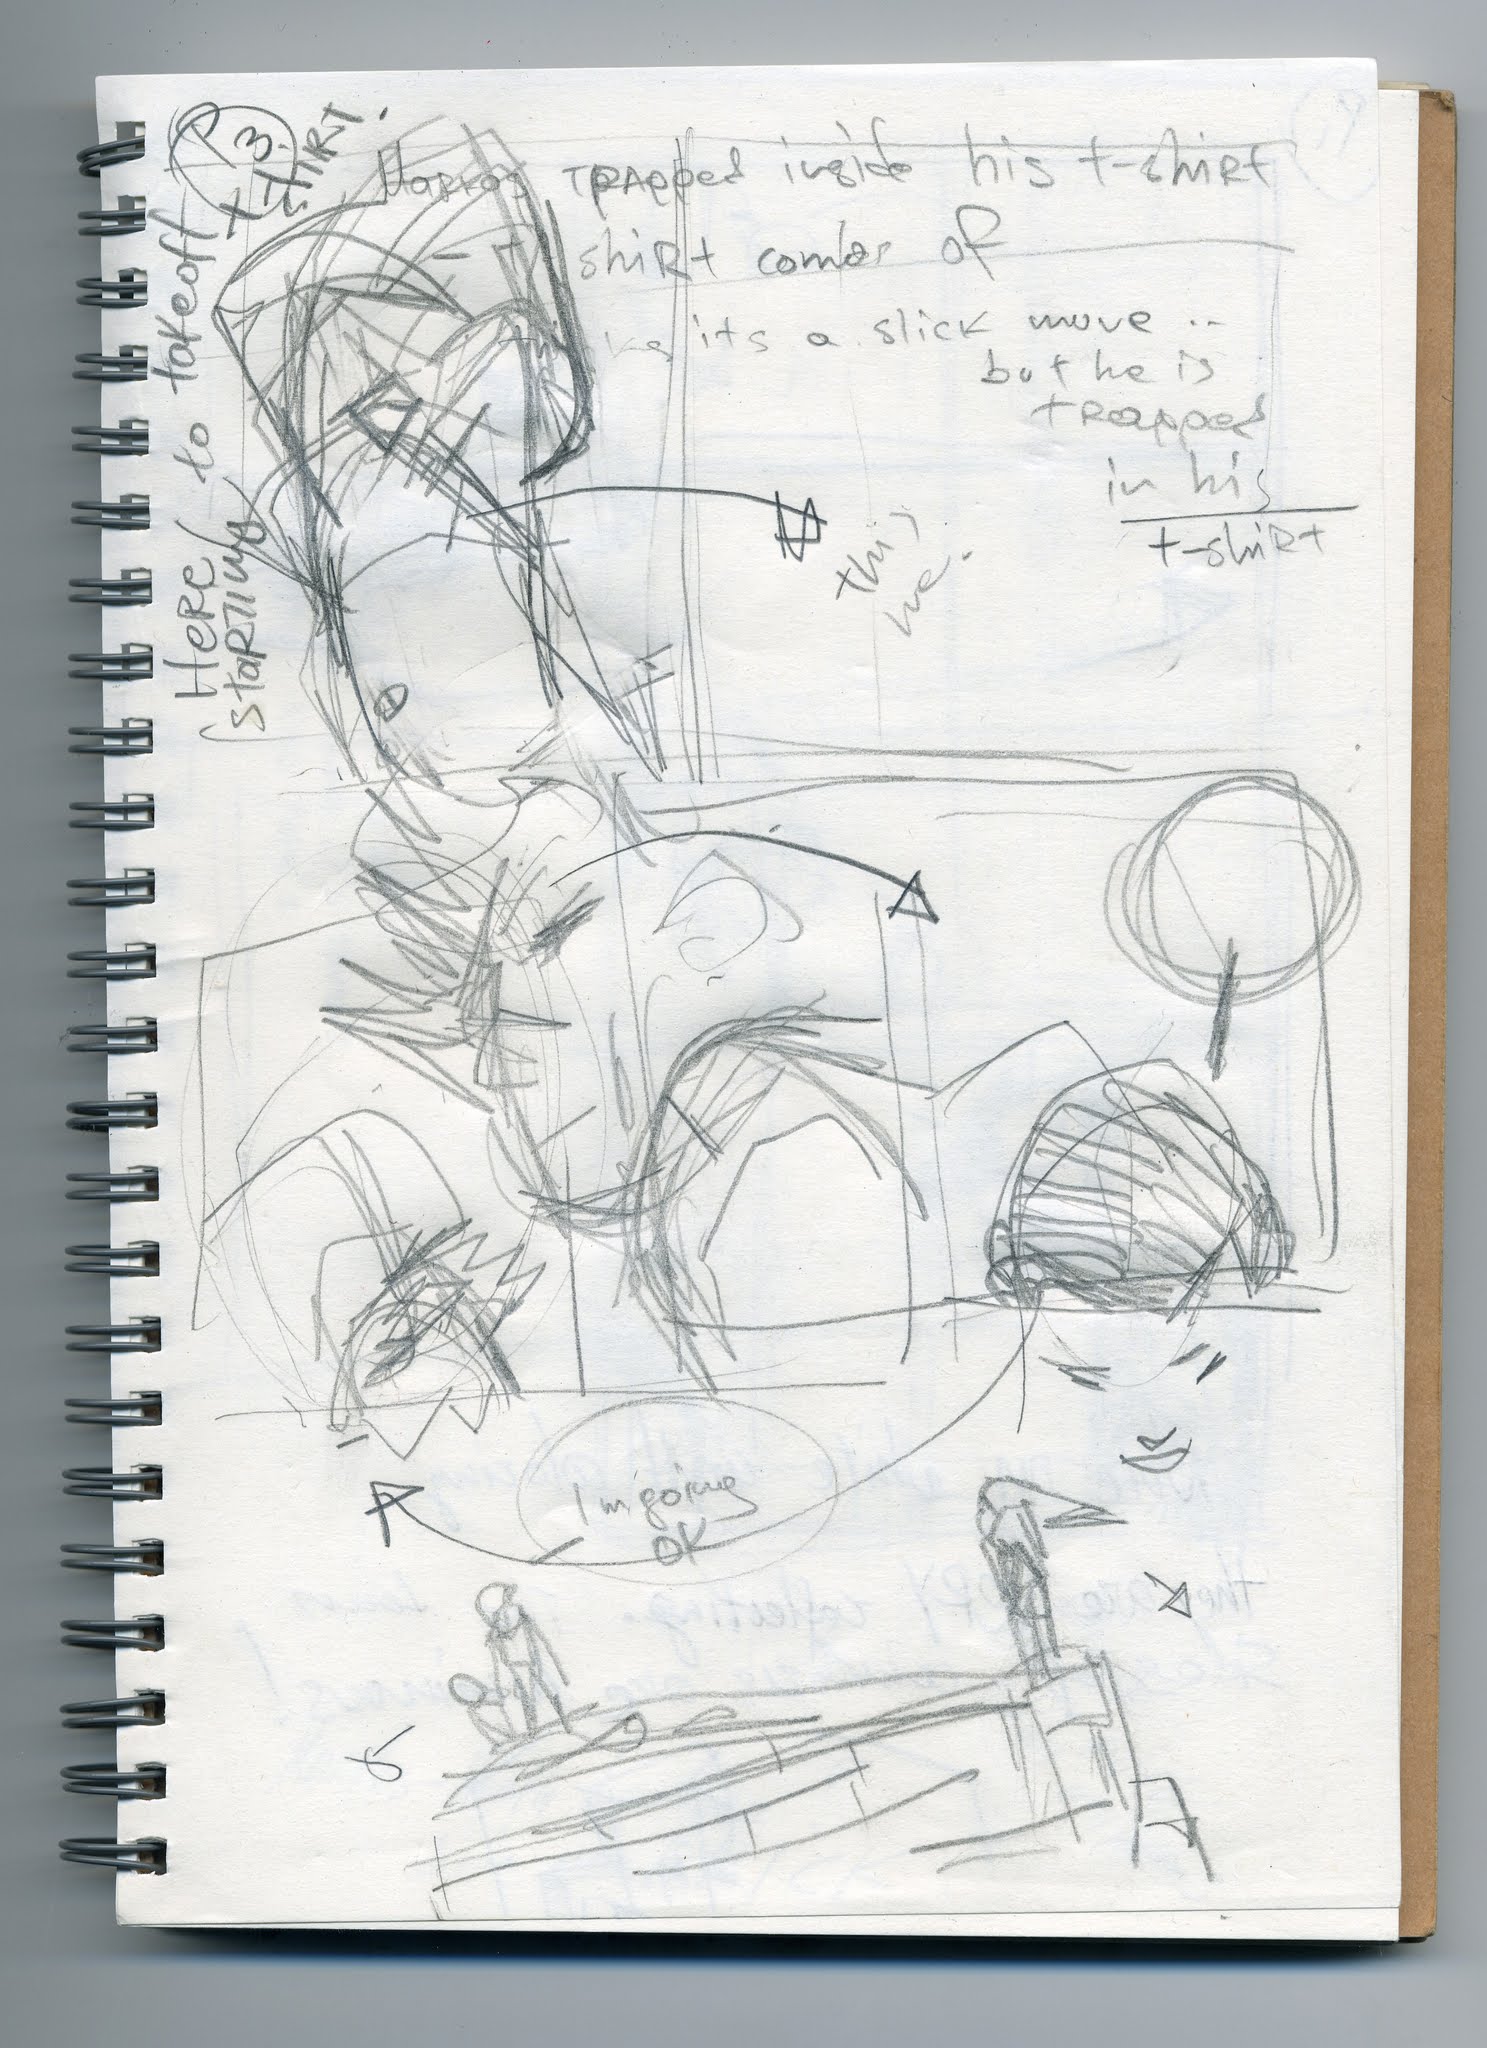 P3
HERE to takeoff
(STARTING
t-SHIRT.
trapped inside his t-shirt
shirt comes of
its a slick move ..
but he is
trapped
in his
t-shirt
this
I'm going
OK